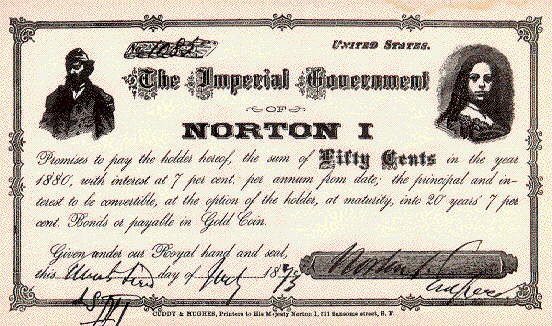 No. 1085
UNITED STATES.
The Imperial Government
OF
NORTON I
Promises to pay the holder hereof, the sum of Fifty Cents in the year
1880, with interest at 7 per cent. per annum from date; the principal and in-
terest to be convertible, at the option of the holder, at maturity, into 20 years' 7 per
cent. Bonds or payable in Gold Coin.
Given under our Royal hand and seal,
this day of 187 Norton I.
Emperor
CUDDY & HUGHES, Printers to His Majesty Norton I, 511 Sansome street, S. F.